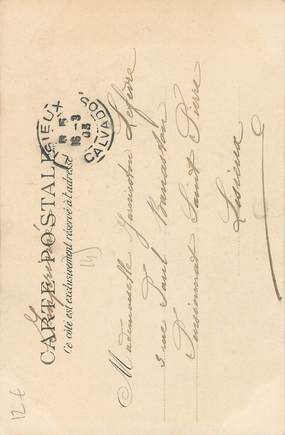 CARTE POSTALE
Ce côté est exclusivement réservé à l'adresse
LISIEUX
16-3
03
CALVADOS
Mademoiselle Lefèvre
3 rue Paul
Pensionnat Saint Pierre
Lisieux
12 €